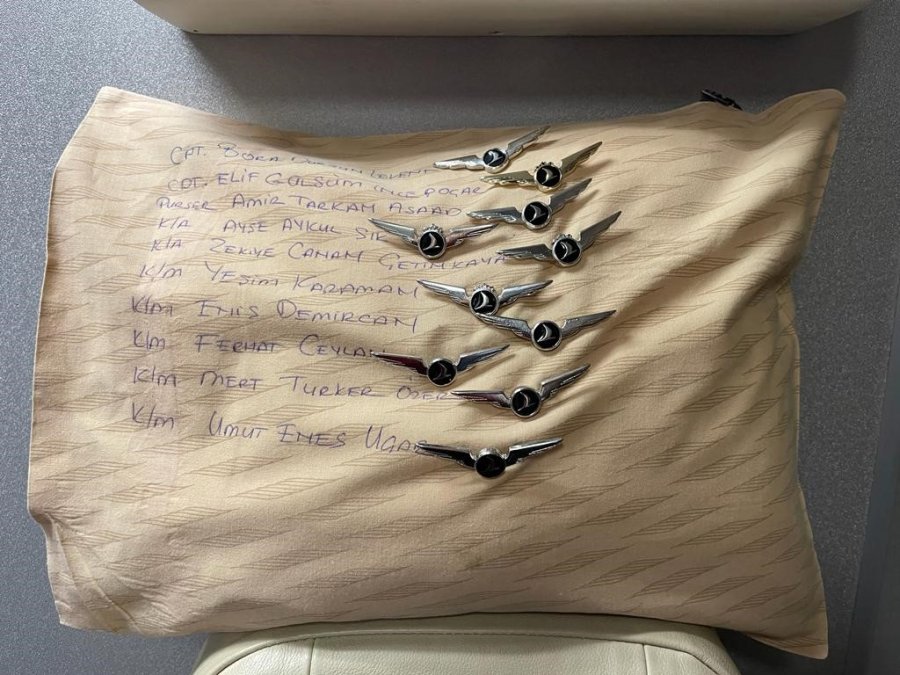 CPT. BORA
CPT. ELIF GÜLSÜM İNCE POÇAR
PURSER AMIR TARKAM ASAAD
K/A AYSE AYKUL SIR
K/A ZEKIYE CANAM GETIMKAYA
K/M YEŞIM KARAMAN
K/M ENIS DEMIRCAM
K/M FERHAT CEYLAN
K/M MERT TURKER ÖZER
K/M UMUT ENES UGAR